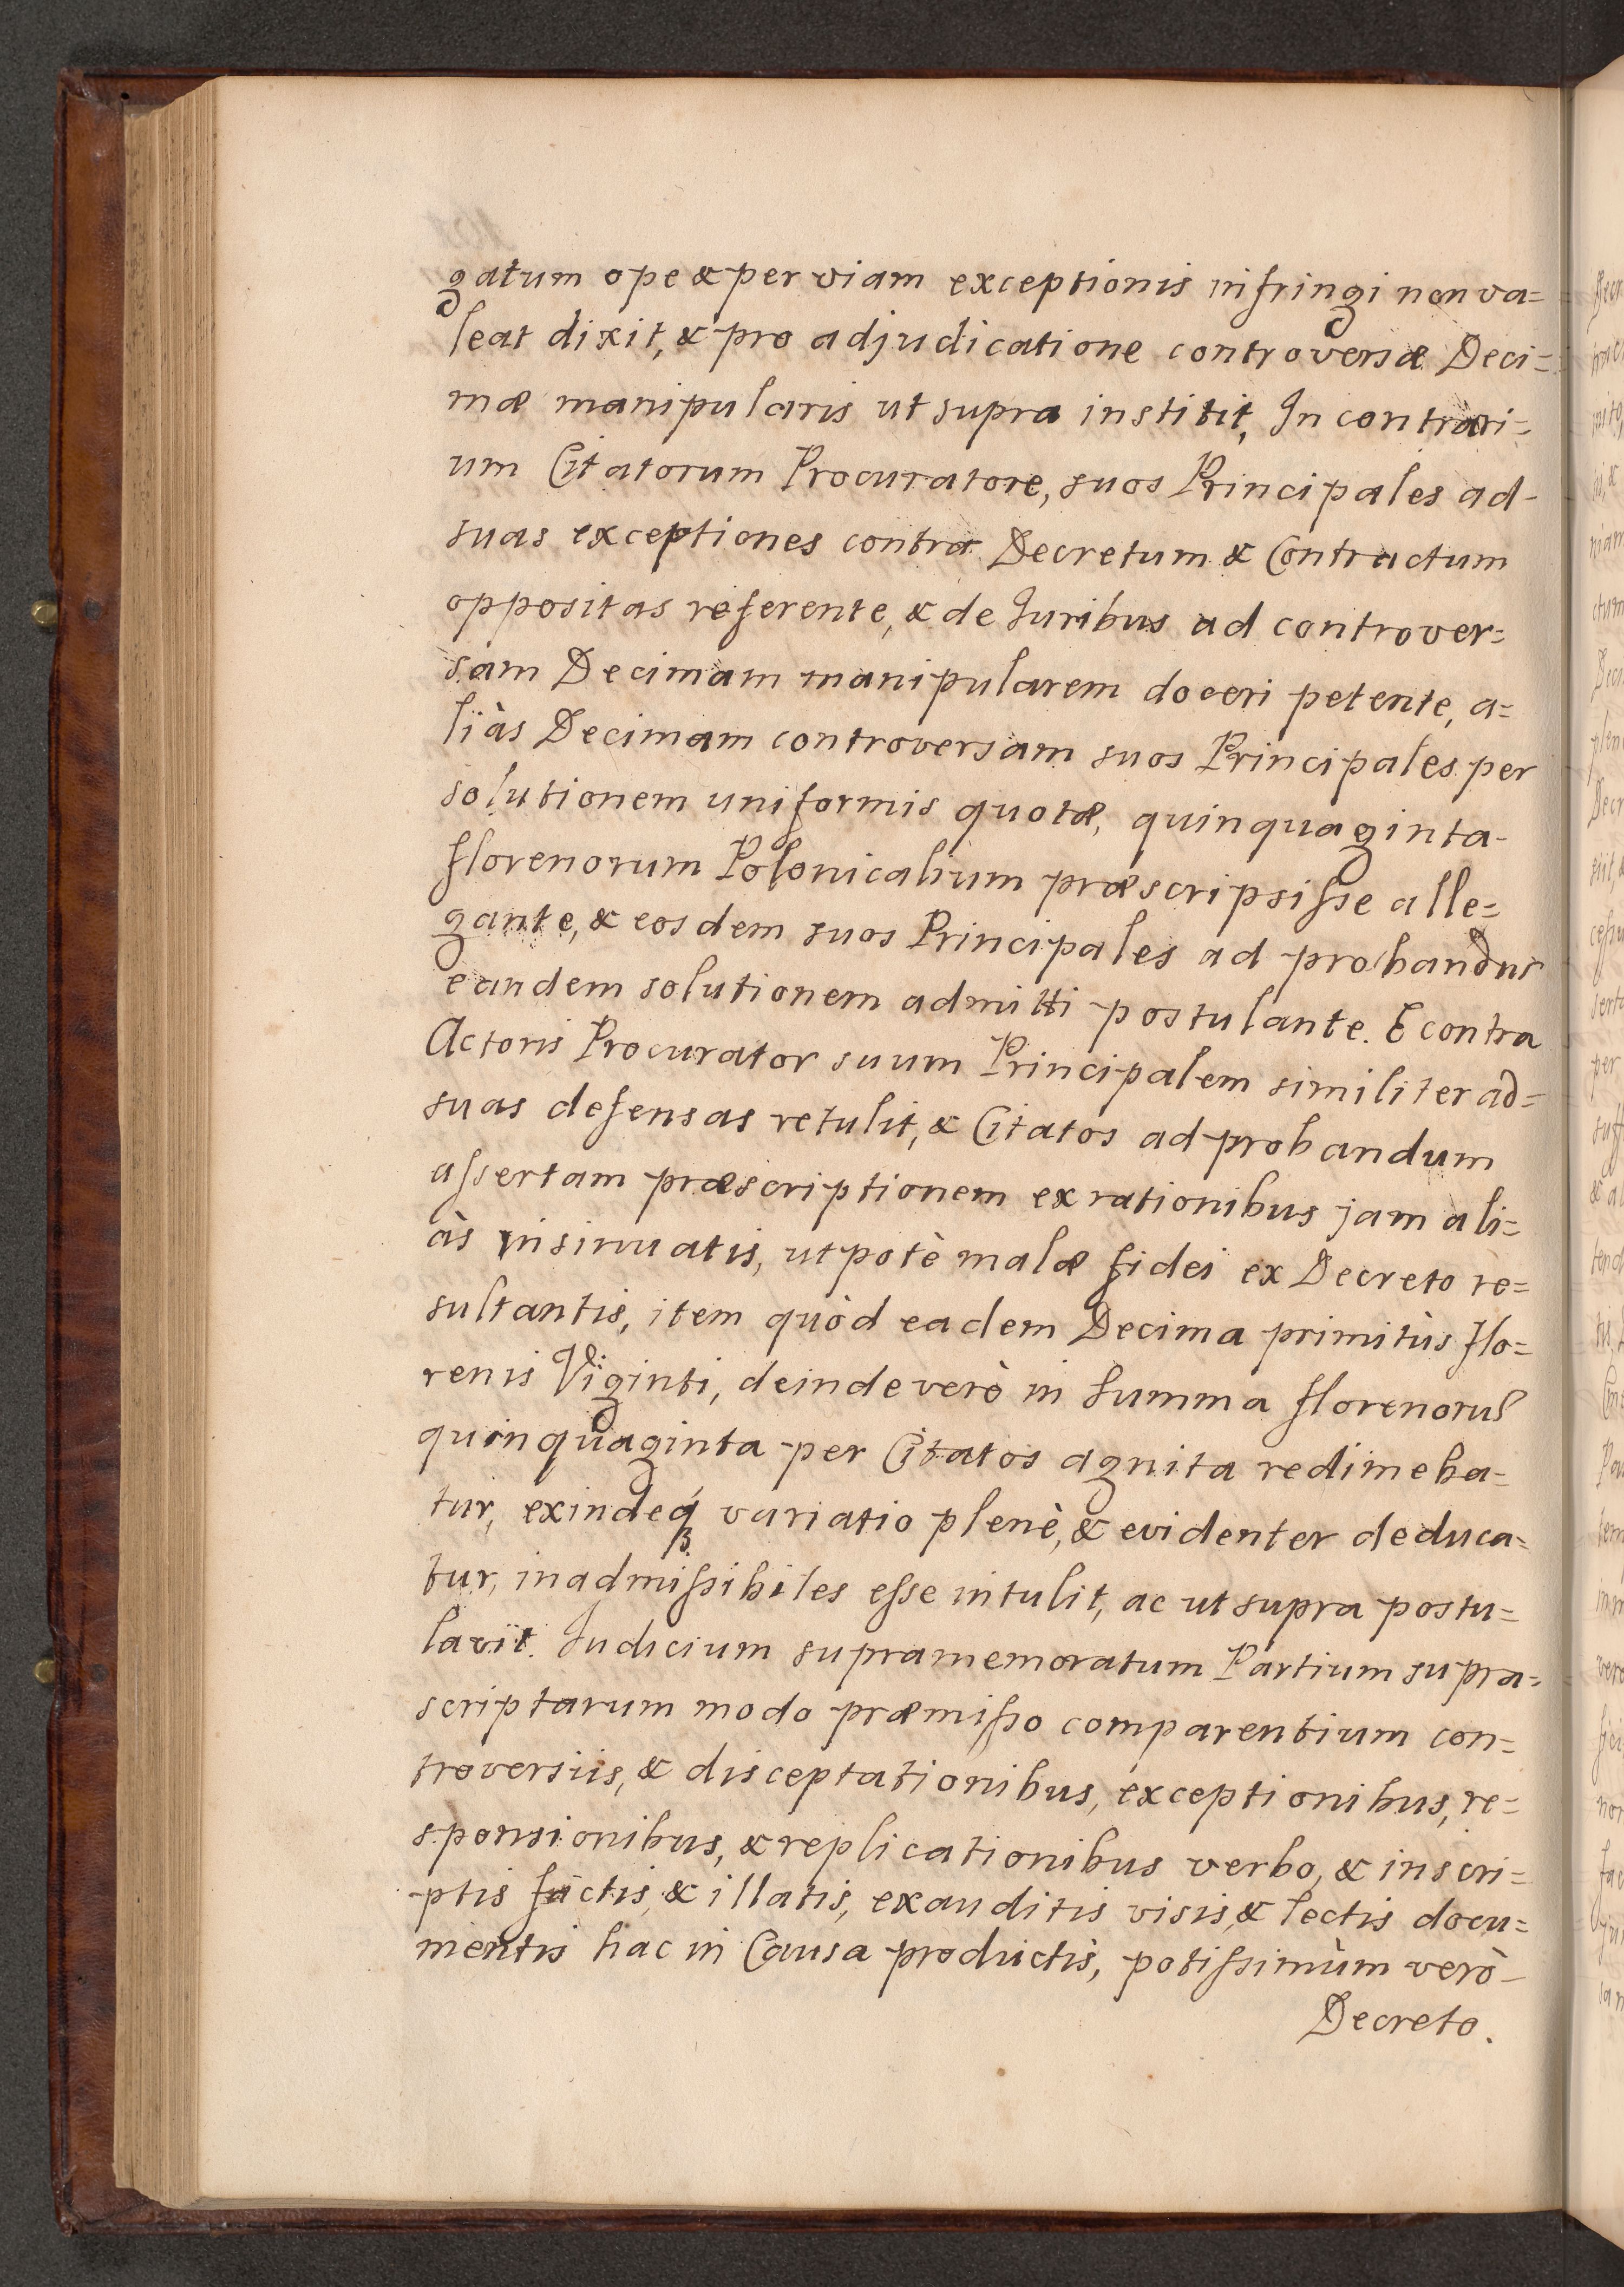 gatum ope & per viam exceptionis infringi non va=
leat dixit, & pro adjudicatione controversæ Deci=
mæ manipularis ut supra institit, In contrari=
um Citatorum Procuratore, suos Principales ad-
suas exceptiones contra Decretum & Contractum
oppositas referente, & de Iuribus ad controver=
sam Decimam manipularem doceri petente, a=
liàs Decimam controversam suos Principales per
solutionem uniformis quotæ, quinquaginta-
florenorum Polonicalium præscripsiſse alle=
gante, & eosdem suos Principales ad probandus
eandem solutionem admitti postulante. E contra
Actoris Procurator suum Principalem similiter ad=
suas defensas retulit, & Citatos ad probandum
aſsertam præscriptionem ex rationibus jam ali=
às insinuatis, utpotè malæ fidei ex Decreto re=
sultantis, item quòd eadem Decima primitùs flo=
renis Viginti, deinde verò in Summa florenorum
quinquaginta per Citatos agnita redimeba=
tur, exindeqꝫ variatio plenè, & evidenter deduca=
tur, inadmiſsibiles eſse intulit, ac ut supra postu=
lavit. Iudicium supramemoratum Partium supra=
scriptarum modo præmiſso comparentium con=
troversiis, & disceptationibus, exceptionibus, re=
sponsionibus, & replicationibus verbo, & in scri=
ptis factis, & illatis, exauditis visis, & lectis docu=
mentis hac in Causa productis, potiſsimùm verò-
Decreto.